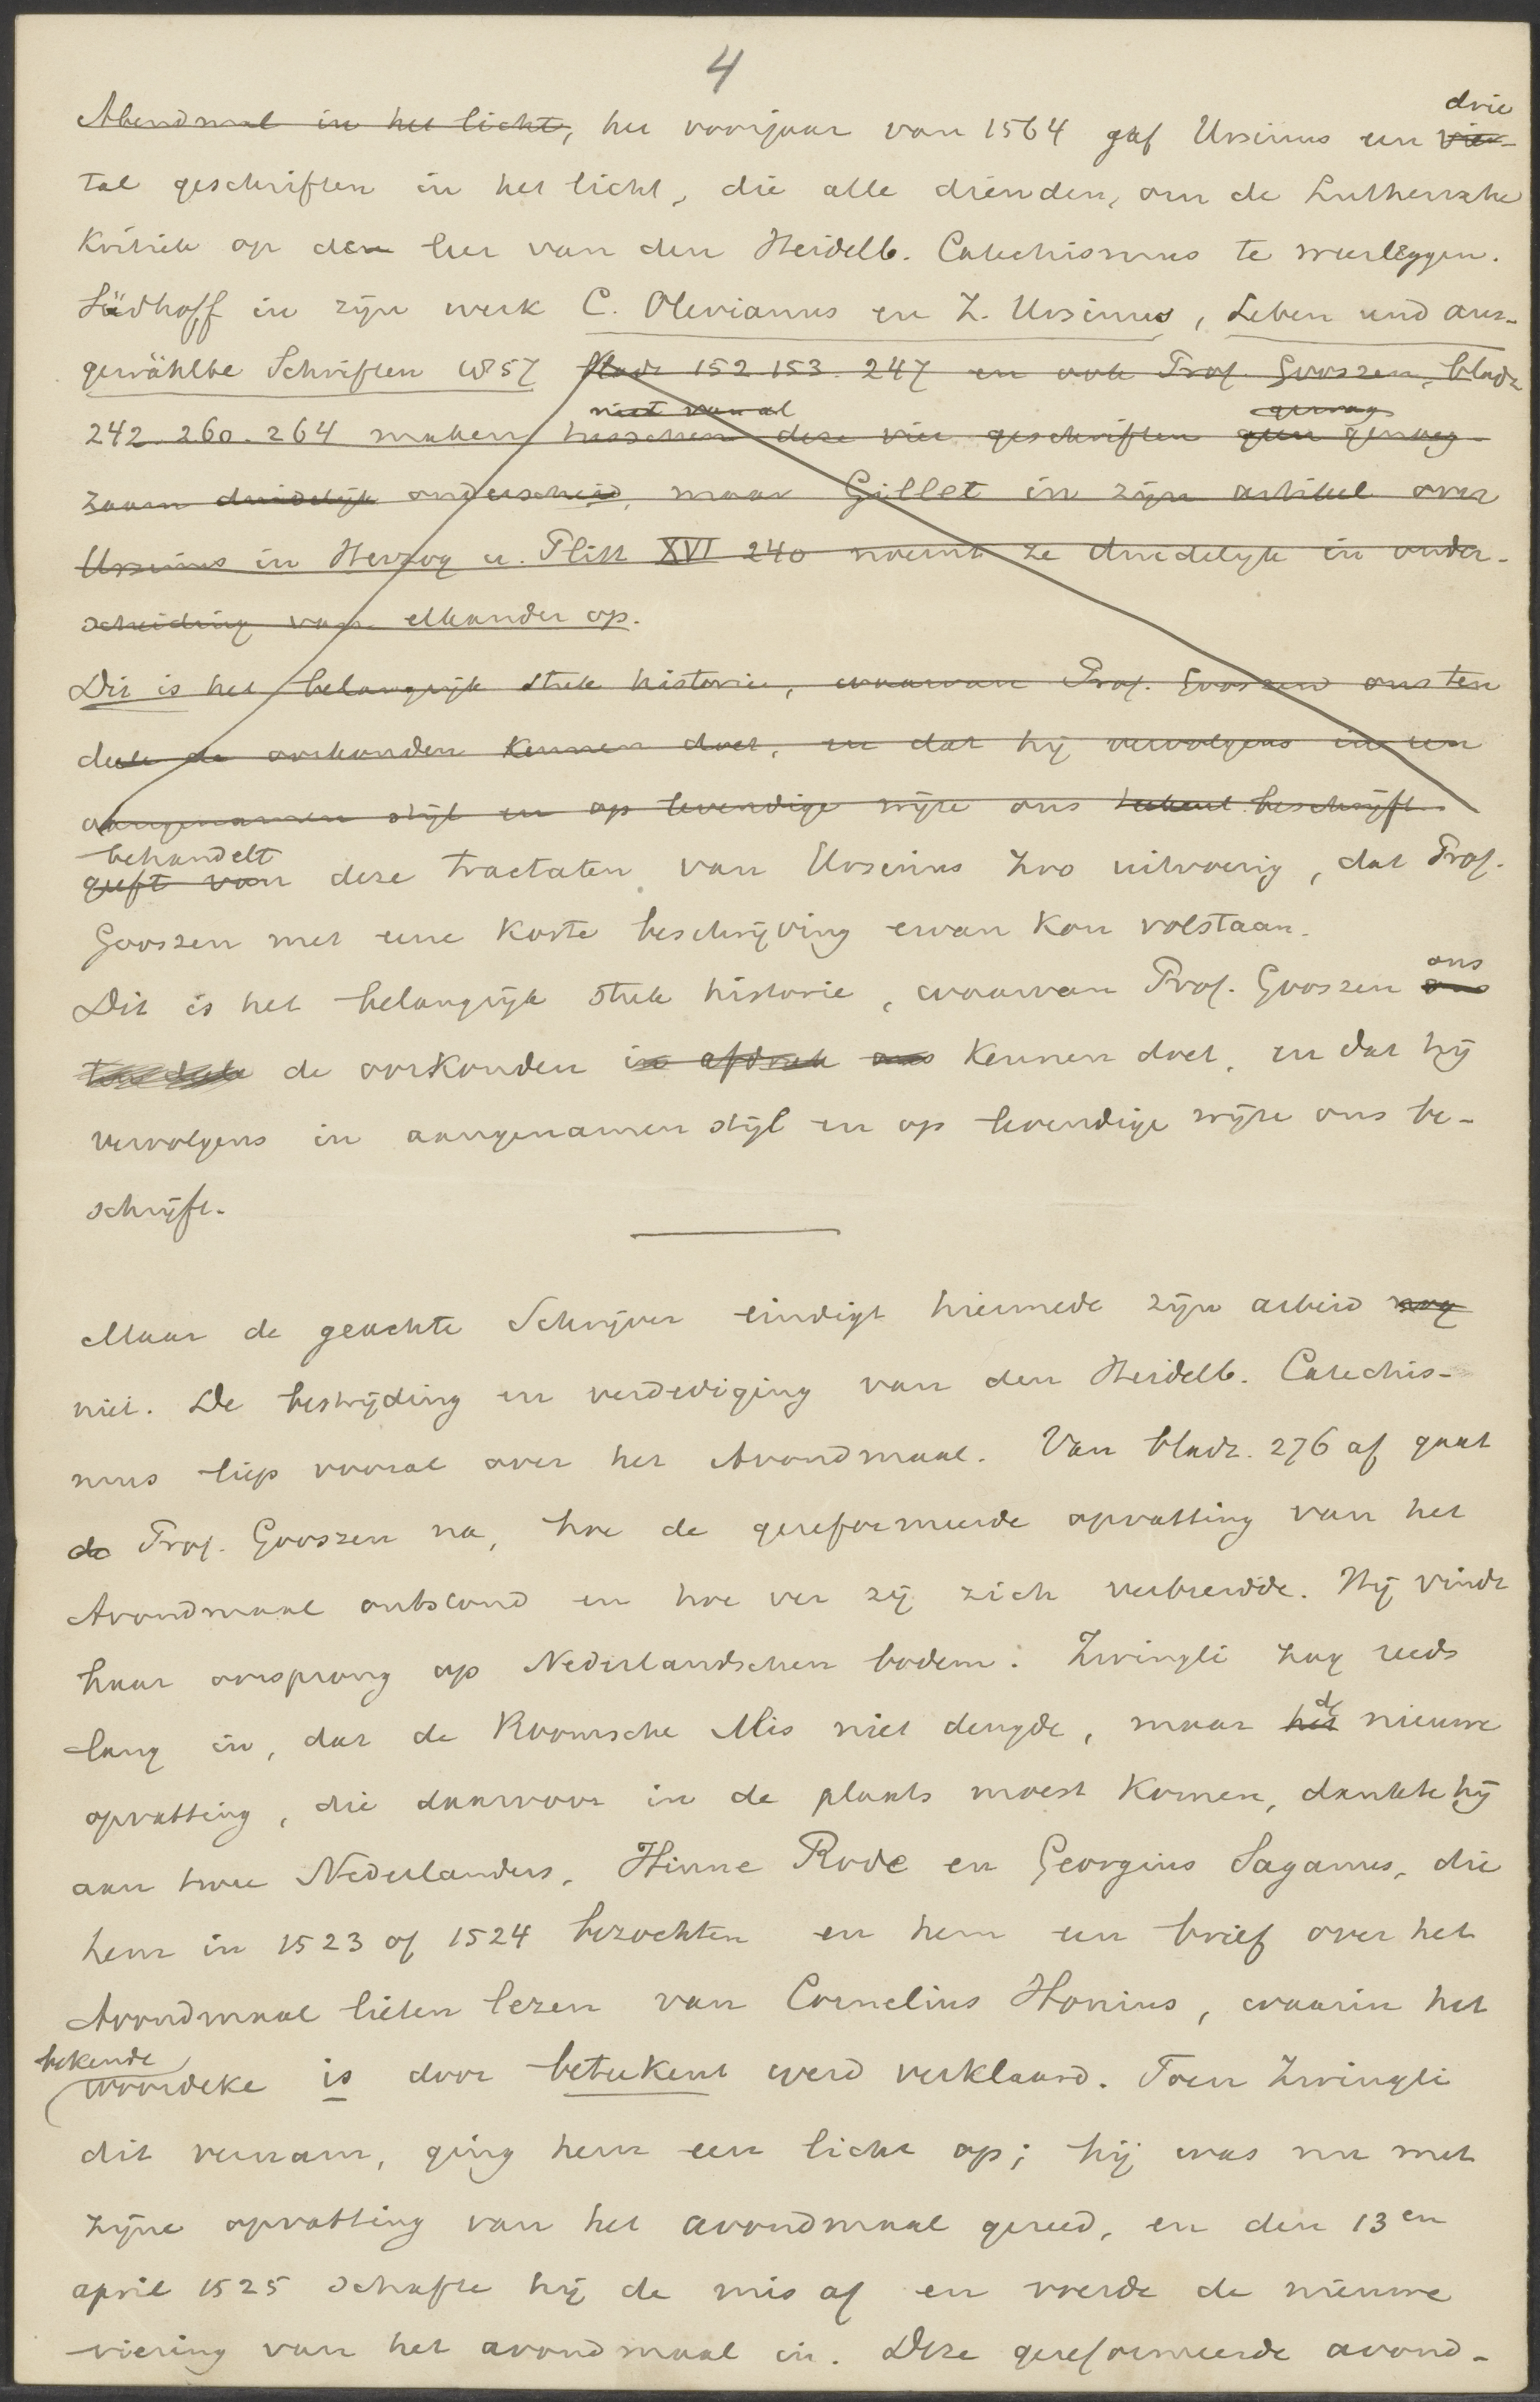 4
Abendmal in het licht, het voorjaar van 1564 gaf Ursinus een drie vier-
tal geschriften in het licht, die alle dienden, om de Luthersche
Kritiek op den leer van den Heidelb. Catechismus te weerleggen.
Südhoff in zijn werk C. Olevianus en Z. Ursinus, Leben und aus-
gewählte Schriften 1857 bladz 152 153. 247 en ook Prof. Gooszen, bladz
242. 260. 264 maken niet vooral tusschen deze vier geschriften geen genoeg gewag
zaam duidelijk onderscheid, maar Gillet in zijn artikel over
Ursinus in Herzog u. Plitt XVI 240 noemt ze duidelijk in onder-
scheiding van elkander op.
Dit is het belangrijk stuk historie, waarvan Prof. Gooszen ons ten
deele de oorkonden kennen doet, en dat hij vervolgens in een
aangenamen stijl en op levendige wijze ons beschrijft.
behandelt
geeft van deze tractaten van Ursinus zoo uitvoerig, dat Prof.
Gooszen met eene korte beschrijving ervan kon volstaan.
Dit is het belangrijk stuk historie, waarvan Prof. Gooszen ons ons
ten deele de oorkonden in afdruk ons kennen doet, en dat hij
vervolgens in aangenamen stijl en op levendige wijze ons be-
schrijft.
Maar de geachte Schrijver eindigt hiermede zijn arbeid nog
niet. De bestrijding en verdediging van den Heidelb. Catechis-
mus liep vooral over het Avondmaal. Van bladz. 276 af gaat
de Prof. Gooszen na, hoe de gereformeerde opvatting van het
Avondmaal ontstond en hoe ver zij zich verbreidde. Hij vindt
haar oorsprong op Nederlandschen bodem. Zwingli zag reeds
lang in, dat de Roomsche Mis niet deugde, maar het de nieuwe
opvatting, die daarvoor in de plaats moest komen, dankte hij
aan twee Nederlanders, Hinne Rode en Georgius Saganus, die
hem in 1523 of 1524 bezochten en hem een brief over het
Avondmaal lieten lezen van Cornelius Honius, waarin het
bekende
woordeke is door beteekent werd verklaard. Toen Zwingli
dit vernam, ging hem een licht op; hij was nu met
zijne opvatting van het avondmaal gereed, en den 13en
april 1525 schafte hij de mis af en voerde de nieuwe
viering van het avondmaal in. Deze gereformeerde avond-